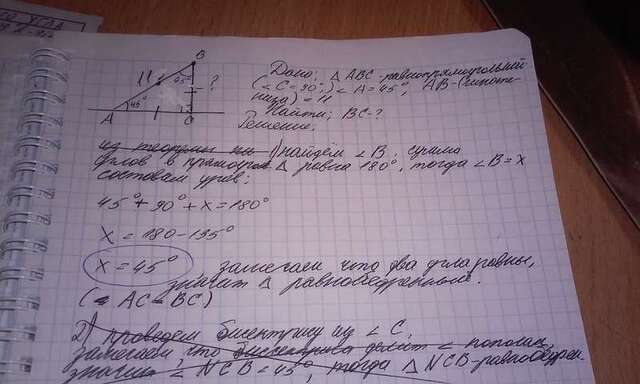 B
11
45°
?
45°
A
C
Дано: △ ABC - равнопрямоугольный
(∠C=90°;) ∠A=45°, AB-(гипоте-
нуза) = 11
Найти: BC-?
Решение:
из теоремы 1) найдем ∠B, сумма
углов в прямоуг △ равна 180°, тогда ∠B=x
составем урав:
45°+90°+x=180°
x=180-135°
x=45° замечаем что два угла равны,
значит △ равнобедренный.
(AC=BC)
2) проведем биссектрису из ∠C,
замечаем, что биссектриса делит ∠ пополам,
значит ∠NCB=45°, тогда △NCB-равнобедрен